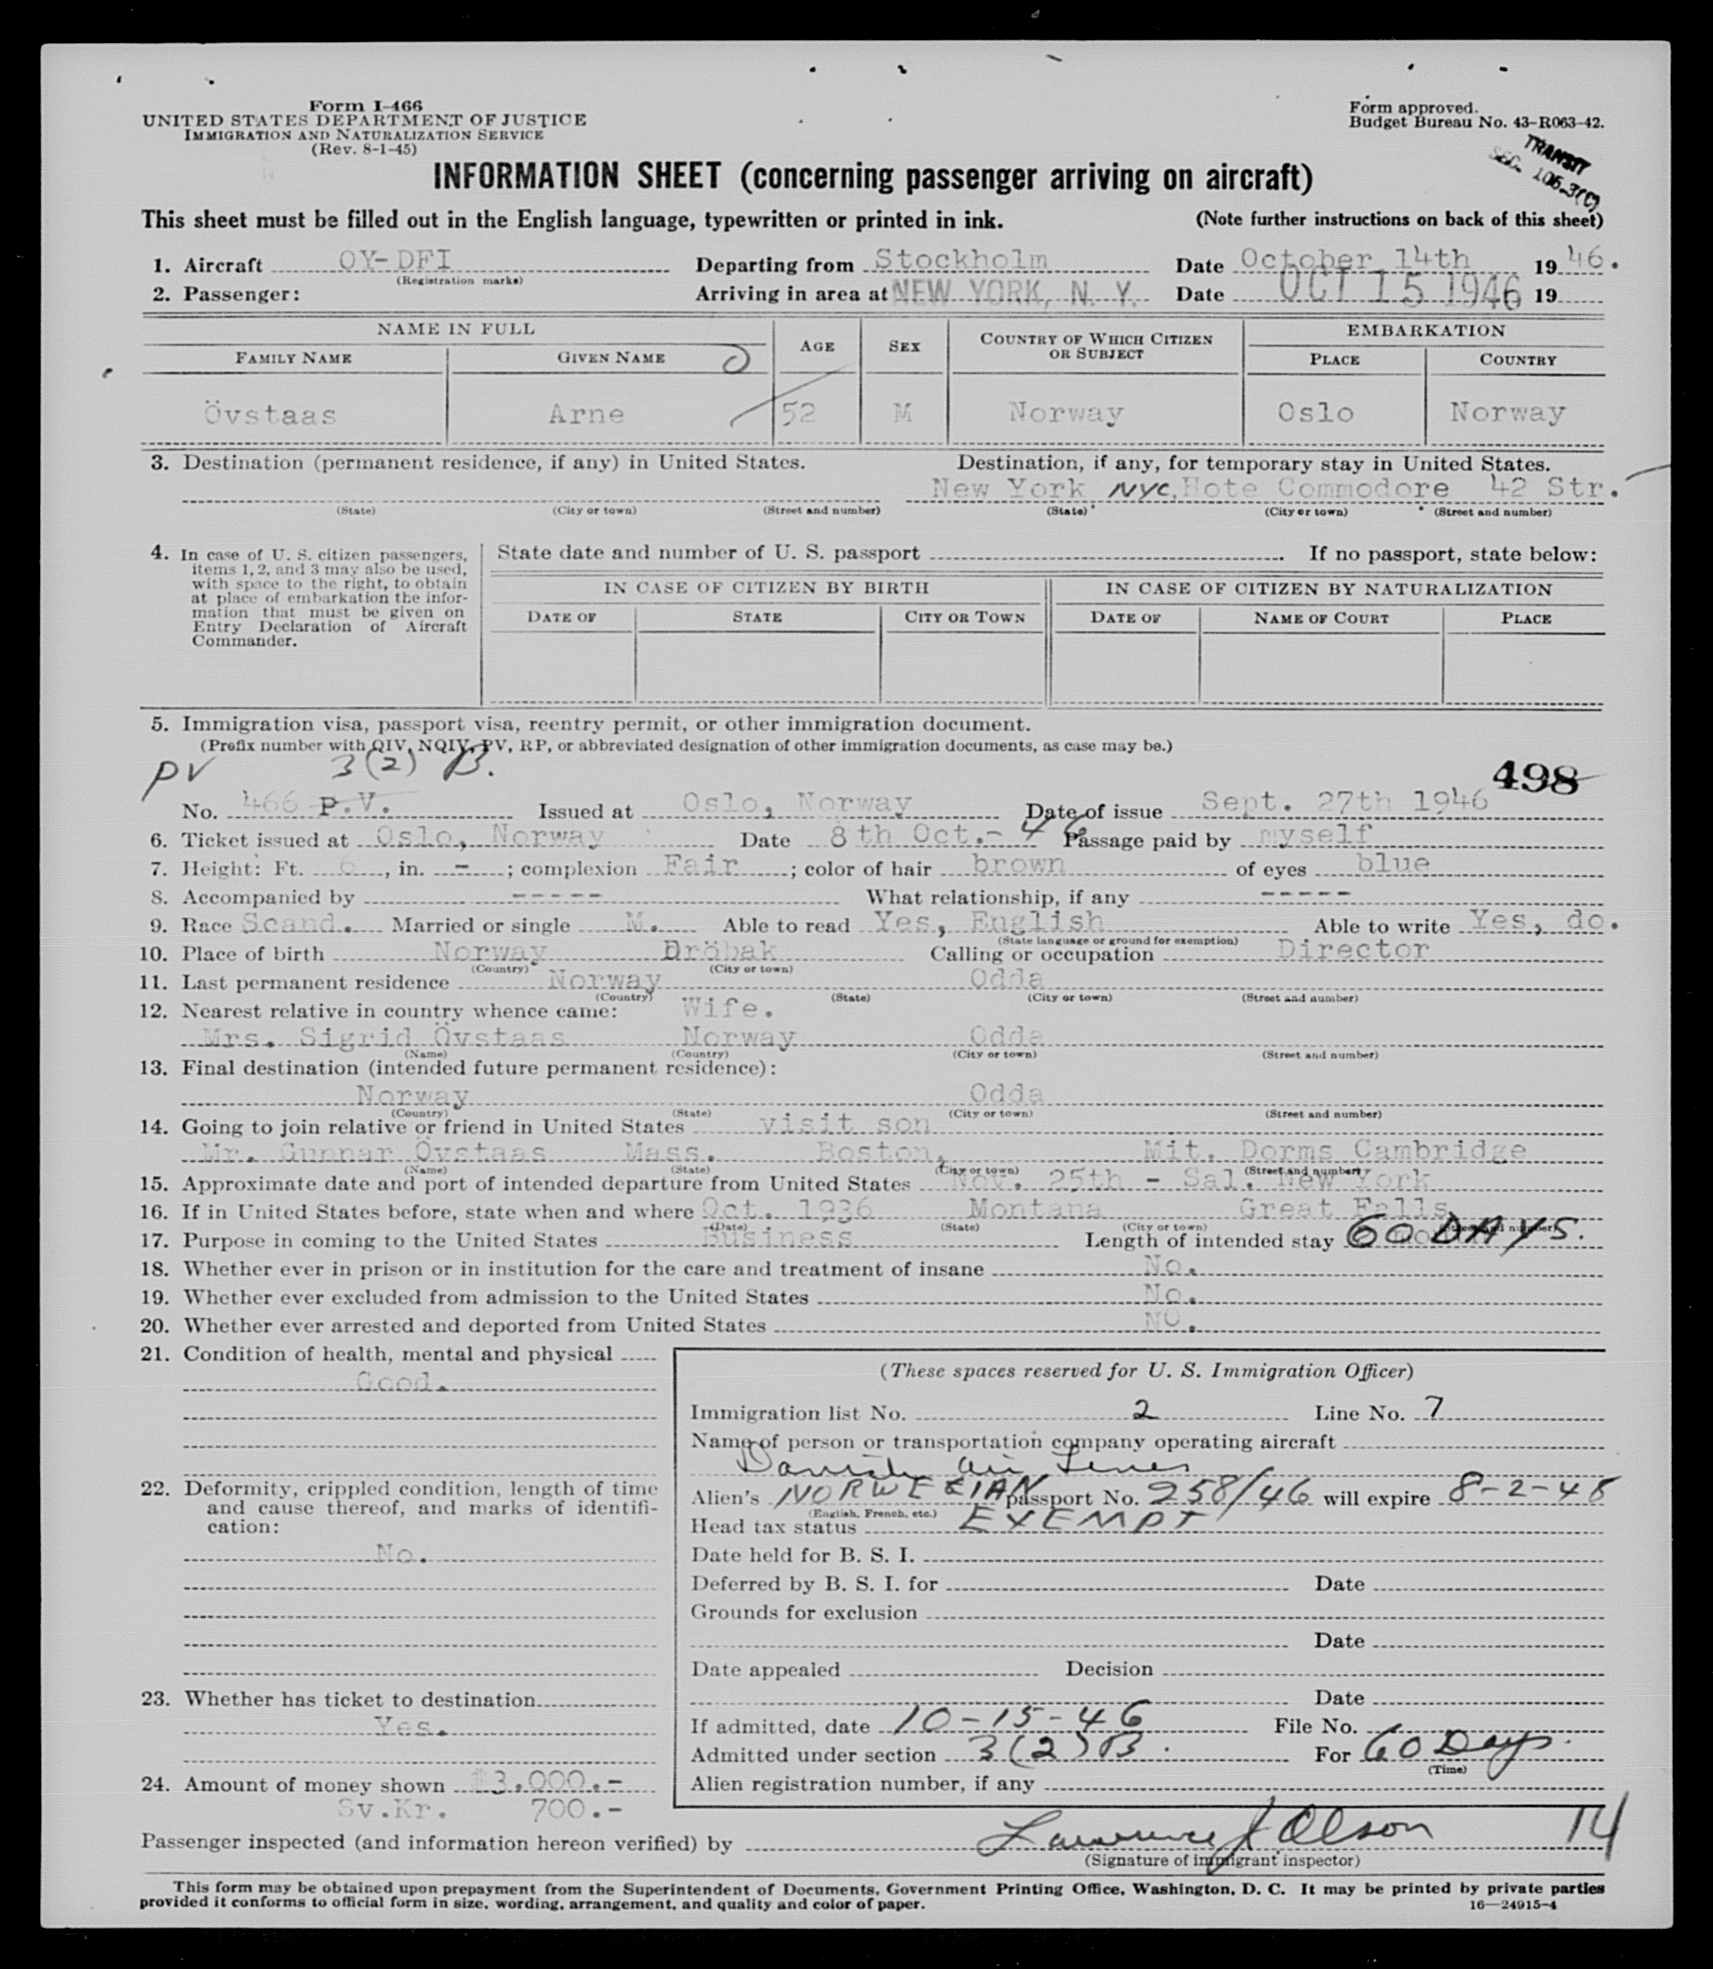 Form I-466
UNITED STATES DEPARTMENT OF JUSTICE
IMMIGRATION AND NATURALIZATION SERVICE
(Rev. 8-1-45)
Form approved.
Budget Bureau No. 43-R063-42.
TRANSIT
SEC. 105.3(C)
INFORMATION SHEET (concerning passenger arriving on aircraft)
This sheet must be filled out in the English language, typewritten or printed in ink. (Note further instructions on back of this sheet)
1. Aircraft OY-DFI Departing from Stockholm Date October 14th 1946.
(Registration marks)
2. Passenger: Arriving in area at NEW YORK, N. Y. Date OCT 15 1946 19
NAME IN FULL AGE SEX COUNTRY OF WHICH CITIZEN OR SUBJECT EMBARKATION
FAMILY NAME GIVEN NAME PLACE COUNTRY
Övstaas Arne 52 M Norway Oslo Norway
3. Destination (permanent residence, if any) in United States. Destination, if any, for temporary stay in United States.
New York NYC, Hote Commodore 42 Str.
(State) (City or town) (Street and number) (State) (City or town) (Street and number)
4. In case of U. S. citizen passengers, items 1, 2, and 3 may also be used, with space to the right, to obtain at place of embarkation the information that must be given on Entry Declaration of Aircraft Commander.
State date and number of U. S. passport If no passport, state below:
IN CASE OF CITIZEN BY BIRTH IN CASE OF CITIZEN BY NATURALIZATION
DATE OF STATE CITY OR TOWN DATE OF NAME OF COURT PLACE
5. Immigration visa, passport visa, reentry permit, or other immigration document.
(Prefix number with QIV, NQIV, PV, RP, or abbreviated designation of other immigration documents, as case may be.)
PV 3(2) B. 498
No. 466 P.V. Issued at Oslo, Norway Date of issue Sept. 27th 1946
6. Ticket issued at Oslo, Norway Date 8th Oct.- 46 Passage paid by myself
7. Height: Ft. 6, in. - ; complexion Fair ; color of hair brown of eyes blue
8. Accompanied by ----- What relationship, if any -----
9. Race Scand. Married or single M. Able to read Yes, English Able to write Yes, do.
(State language or ground for exemption)
10. Place of birth Norway Dröbak Calling or occupation Director
(Country) (City or town)
11. Last permanent residence Norway Odda
(Country) (State) (City or town) (Street and number)
12. Nearest relative in country whence came: Wife.
Mrs. Sigrid Övstaas Norway Odda
(Name) (Country) (City or town) (Street and number)
13. Final destination (intended future permanent residence):
Norway Odda
(Country) (State) (City or town) (Street and number)
14. Going to join relative or friend in United States visit son
Mr. Gunnar Övstaas Mass. Boston, Mit. Dorms Cambridge
(Name) (State) (City or town) (Street and number)
15. Approximate date and port of intended departure from United States Nov. 25th - Sal. New York
16. If in United States before, state when and where Oct. 1936 Montana Great Falls
(Date) (State) (City or town) (Street and number)
17. Purpose in coming to the United States Business Length of intended stay 60 DAYS.
18. Whether ever in prison or in institution for the care and treatment of insane No.
19. Whether ever excluded from admission to the United States No.
20. Whether ever arrested and deported from United States NO.
21. Condition of health, mental and physical
Good.
22. Deformity, crippled condition, length of time and cause thereof, and marks of identification:
No.
23. Whether has ticket to destination
Yes.
24. Amount of money shown $3.000.-
Sv.Kr. 700.-
(These spaces reserved for U. S. Immigration Officer)
Immigration list No. 2 Line No. 7
Name of person or transportation company operating aircraft
Danish Air Lines
Alien's NORWEGIAN passport No. 258/46 will expire 8-2-48
(English, French, etc.)
Head tax status EXEMPT
Date held for B. S. I.
Deferred by B. S. I. for Date
Grounds for exclusion
Date
Date appealed Decision
Date
If admitted, date 10-15-46 File No.
Admitted under section 3(2)B. For 60 Days.
(Time)
Alien registration number, if any
Passenger inspected (and information hereon verified) by Lawrence J Olson 14
(Signature of immigrant inspector)
This form may be obtained upon prepayment from the Superintendent of Documents, Government Printing Office, Washington, D. C. It may be printed by private parties
provided it conforms to official form in size, wording, arrangement, and quality and color of paper. 16—24915-4